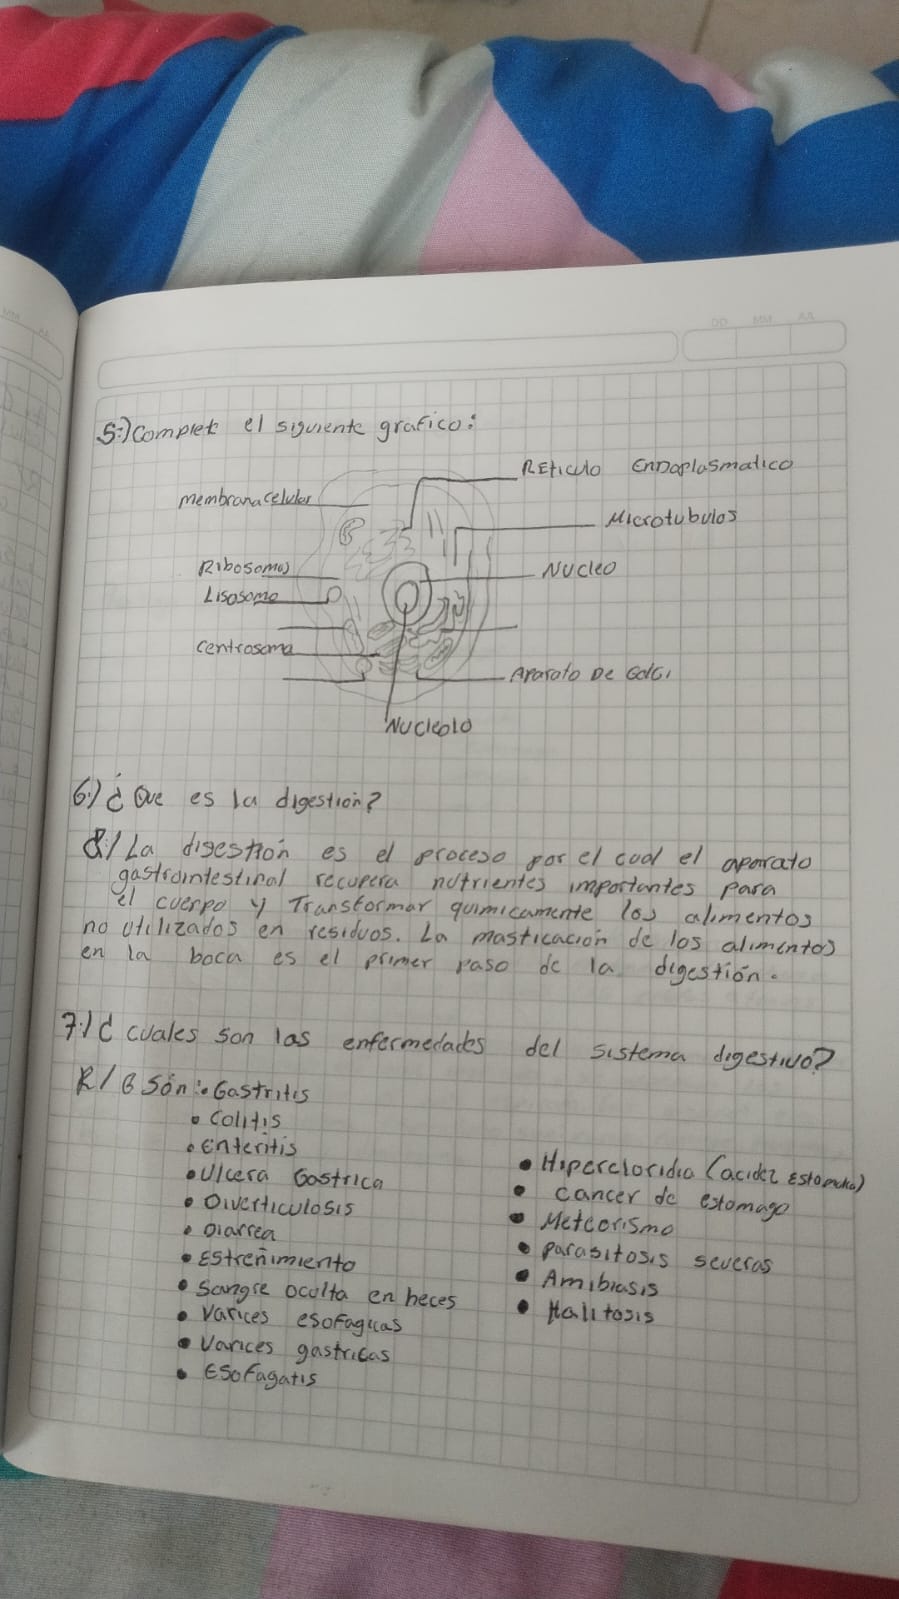 DD MM AA
5:) complete el siguiente grafico:
RETICULO ENDOPLASMATICO
membrana celular
MICROTUBULOS
RIBOSOMAS
NUCLEO
LISOSOMO
centrosoma
APARATO DE GOLGI
NUCLEOLO
6.) ¿Que es la digestión?
R/ La digestión es el proceso por el cual el aparato
gastrointestinal recupera nutrientes importantes para
el cuerpo y Transformar quimicamente los alimentos
no utilizados en residuos. La masticación de los alimentos
en la boca es el primer paso de la digestión.
7.) ¿ cuales son las enfermedades del sistema digestivo?
R/ Són: • Gastritis
• Colitis
• Enteritis
• Ulcera Gastrica
• Diverticulosis
• Diarrea
• Estreñimiento
• Sangre oculta en heces
• Varices esofagicas
• Varices gastricas
• Esofagatis
• Hipercloridia (acidez Estomacal)
• cancer de estomago
• Meteorismo
• parasitosis severas
• Amibiasis
• Halitosis